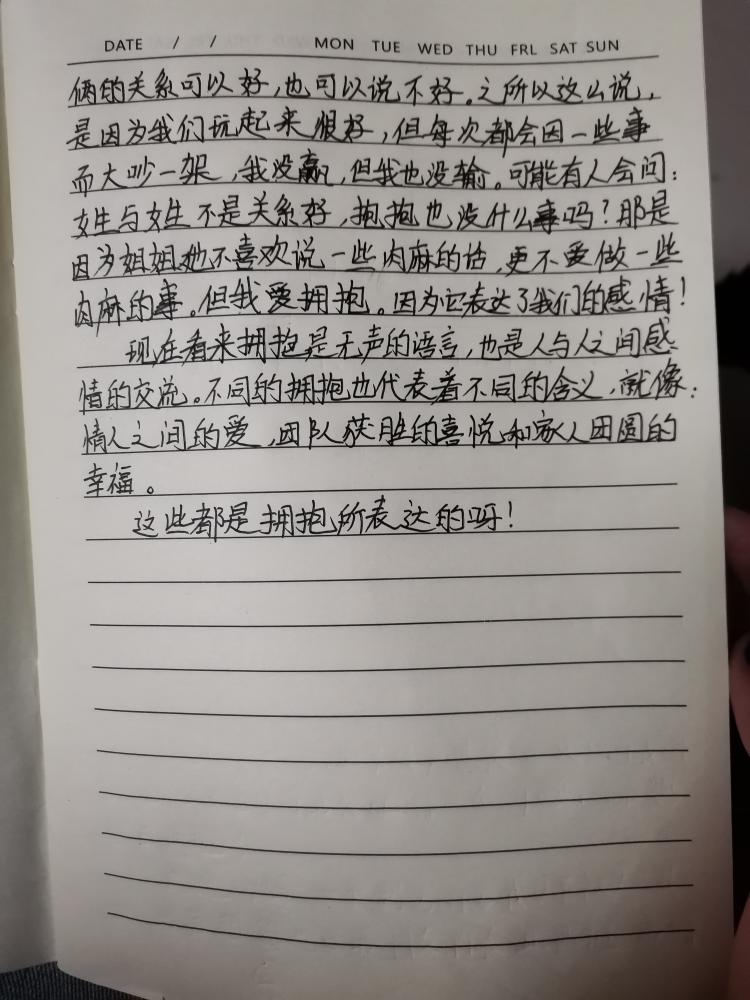 DATE / / MON TUE WED THU FRL SAT SUN
俩的关系可以好,也可以说不好。之所以这么说,
是因为我们玩起来很好,但每次都会因一些事
而大吵一架,我没赢,但我也没输。可能有人会问:
女生与女生不是关系好,抱抱也没什么事吗?那是
因为姐姐她不喜欢说一些肉麻的话,更不爱做一些
肉麻的事。但我爱拥抱。因为它表达了我们的感情!
现在看来拥抱是无声的语言,也是人与人之间感
情的交流。不同的拥抱也代表着不同的含义,就像:
情人之间的爱,团队获胜的喜悦和家人团圆的
幸福。
这些都是拥抱所表达的呀!